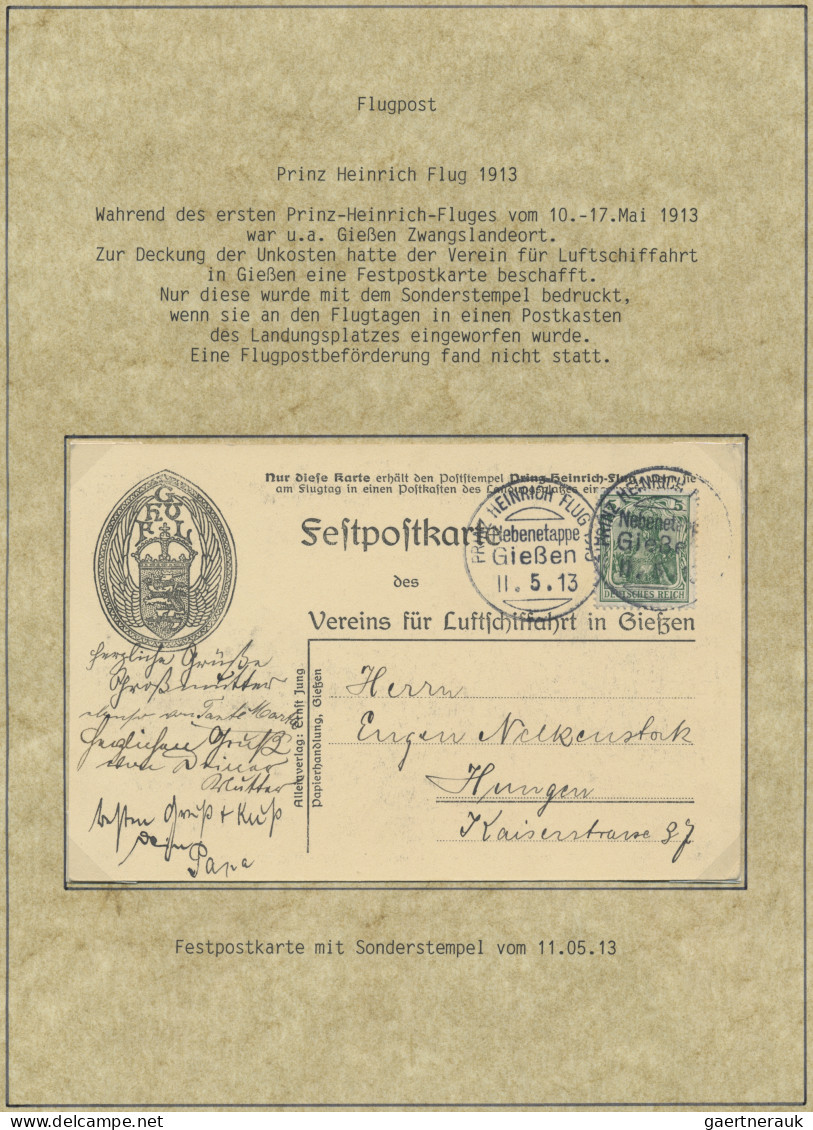 Flugpost
Prinz Heinrich Flug 1913
Wahrend des ersten Prinz-Heinrich-Fluges vom 10.-17.Mai 1913
war u.a. Gießen Zwangslandeort.
Zur Deckung der Unkosten hatte der Verein für Luftschiffahrt
in Gießen eine Festpostkarte beschafft.
Nur diese wurde mit dem Sonderstempel bedruckt,
wenn sie an den Flugtagen in einen Postkasten
des Landungsplatzes eingeworfen wurde.
Eine Flugpostbeförderung fand nicht statt.
Nur diese Karte erhält den Poststempel Prinz-Heinrich-Flug
am Flugtag in einen Postkasten des Landungsplatzes
G
H V
F L
Festpostkarte
des
Vereins für Luftschiffahrt in Gießen
PRINZ HEINRICH FLUG
Nebenetappe
Gießen
11.5.13
PRINZ HEINRICH
Nebenetapp
Gieße
11.
5
DEUTSCHES REICH
herzliche Grüße
Großmutter
ebenso von Tante
herzlichen Gruß
von Deiner
Mutter
besten Gruß + Kuß
Dein
Papa
Alleinverlag: Ernst Jung
Papierhandlung, Gießen
Herrn
Eugen Nelkenstock
Hungen
Kaiserstrasse 37
Festpostkarte mit Sonderstempel vom 11.05.13
www.delcampe.net
gaertnerauk